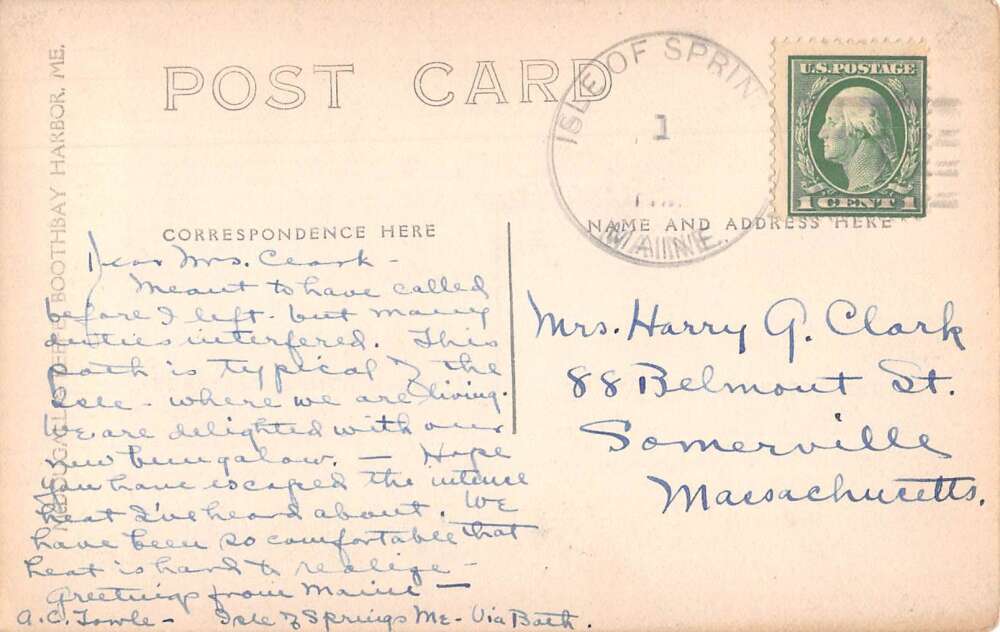 POST CARD
ISLE OF SPRIN
1
MAINE.
U.S. POSTAGE
1 CENT 1
BOOTHBAY HARBOR, ME.
CORRESPONDENCE HERE
NAME AND ADDRESS HERE
Dear Mrs. Clark -
Meant to have called
before I left - but many
duties interfered. This
path is typical of the
Isle - where we are living.
We are delighted with our
new bungalow. - Hope
you have escaped the intense
heat I've heard about. We
have been so comfortable that
heat is hard to realize -
Greetings from Maine -
A.C. Towle - Isle of Springs Me - Via Bath.
Mrs. Harry G. Clark
88 Belmont St.
Somerville
Massachusetts.